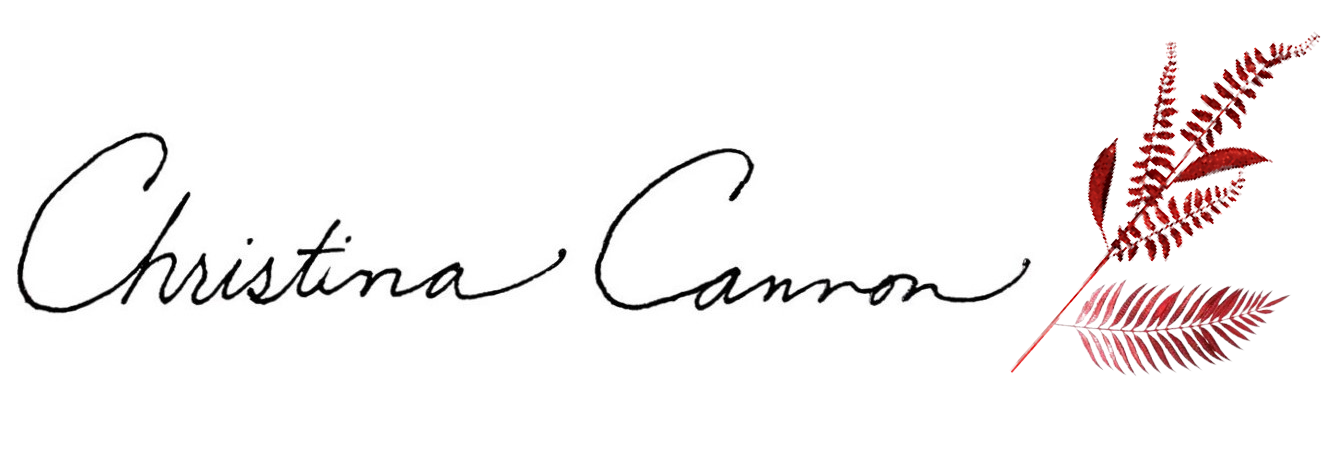 Christina Cannon